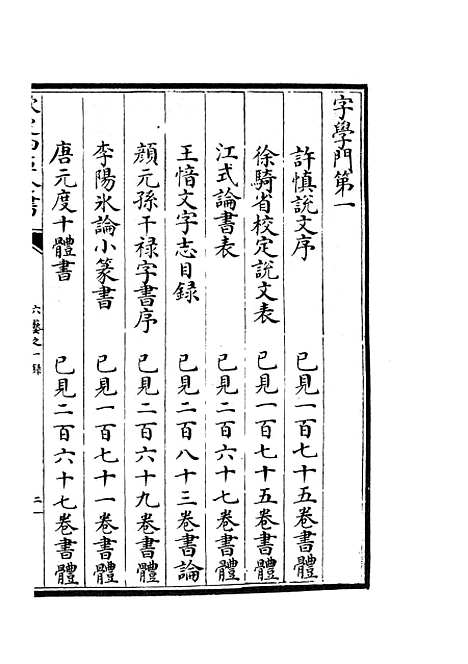 字學門第一
許慎說文序　已見一百七十五卷書體
徐騎省校定說文表　已見一百七十五卷書體
江式論書表　已見二百六十七卷書體
王愔文字志目録　已見二百八十三卷書論
顔元孫干禄字書序　已見二百六十九卷書體
李陽氷論小篆書　已見一百七十一卷書體
唐元度十體書　已見二百六十七卷書體
六藝之一録